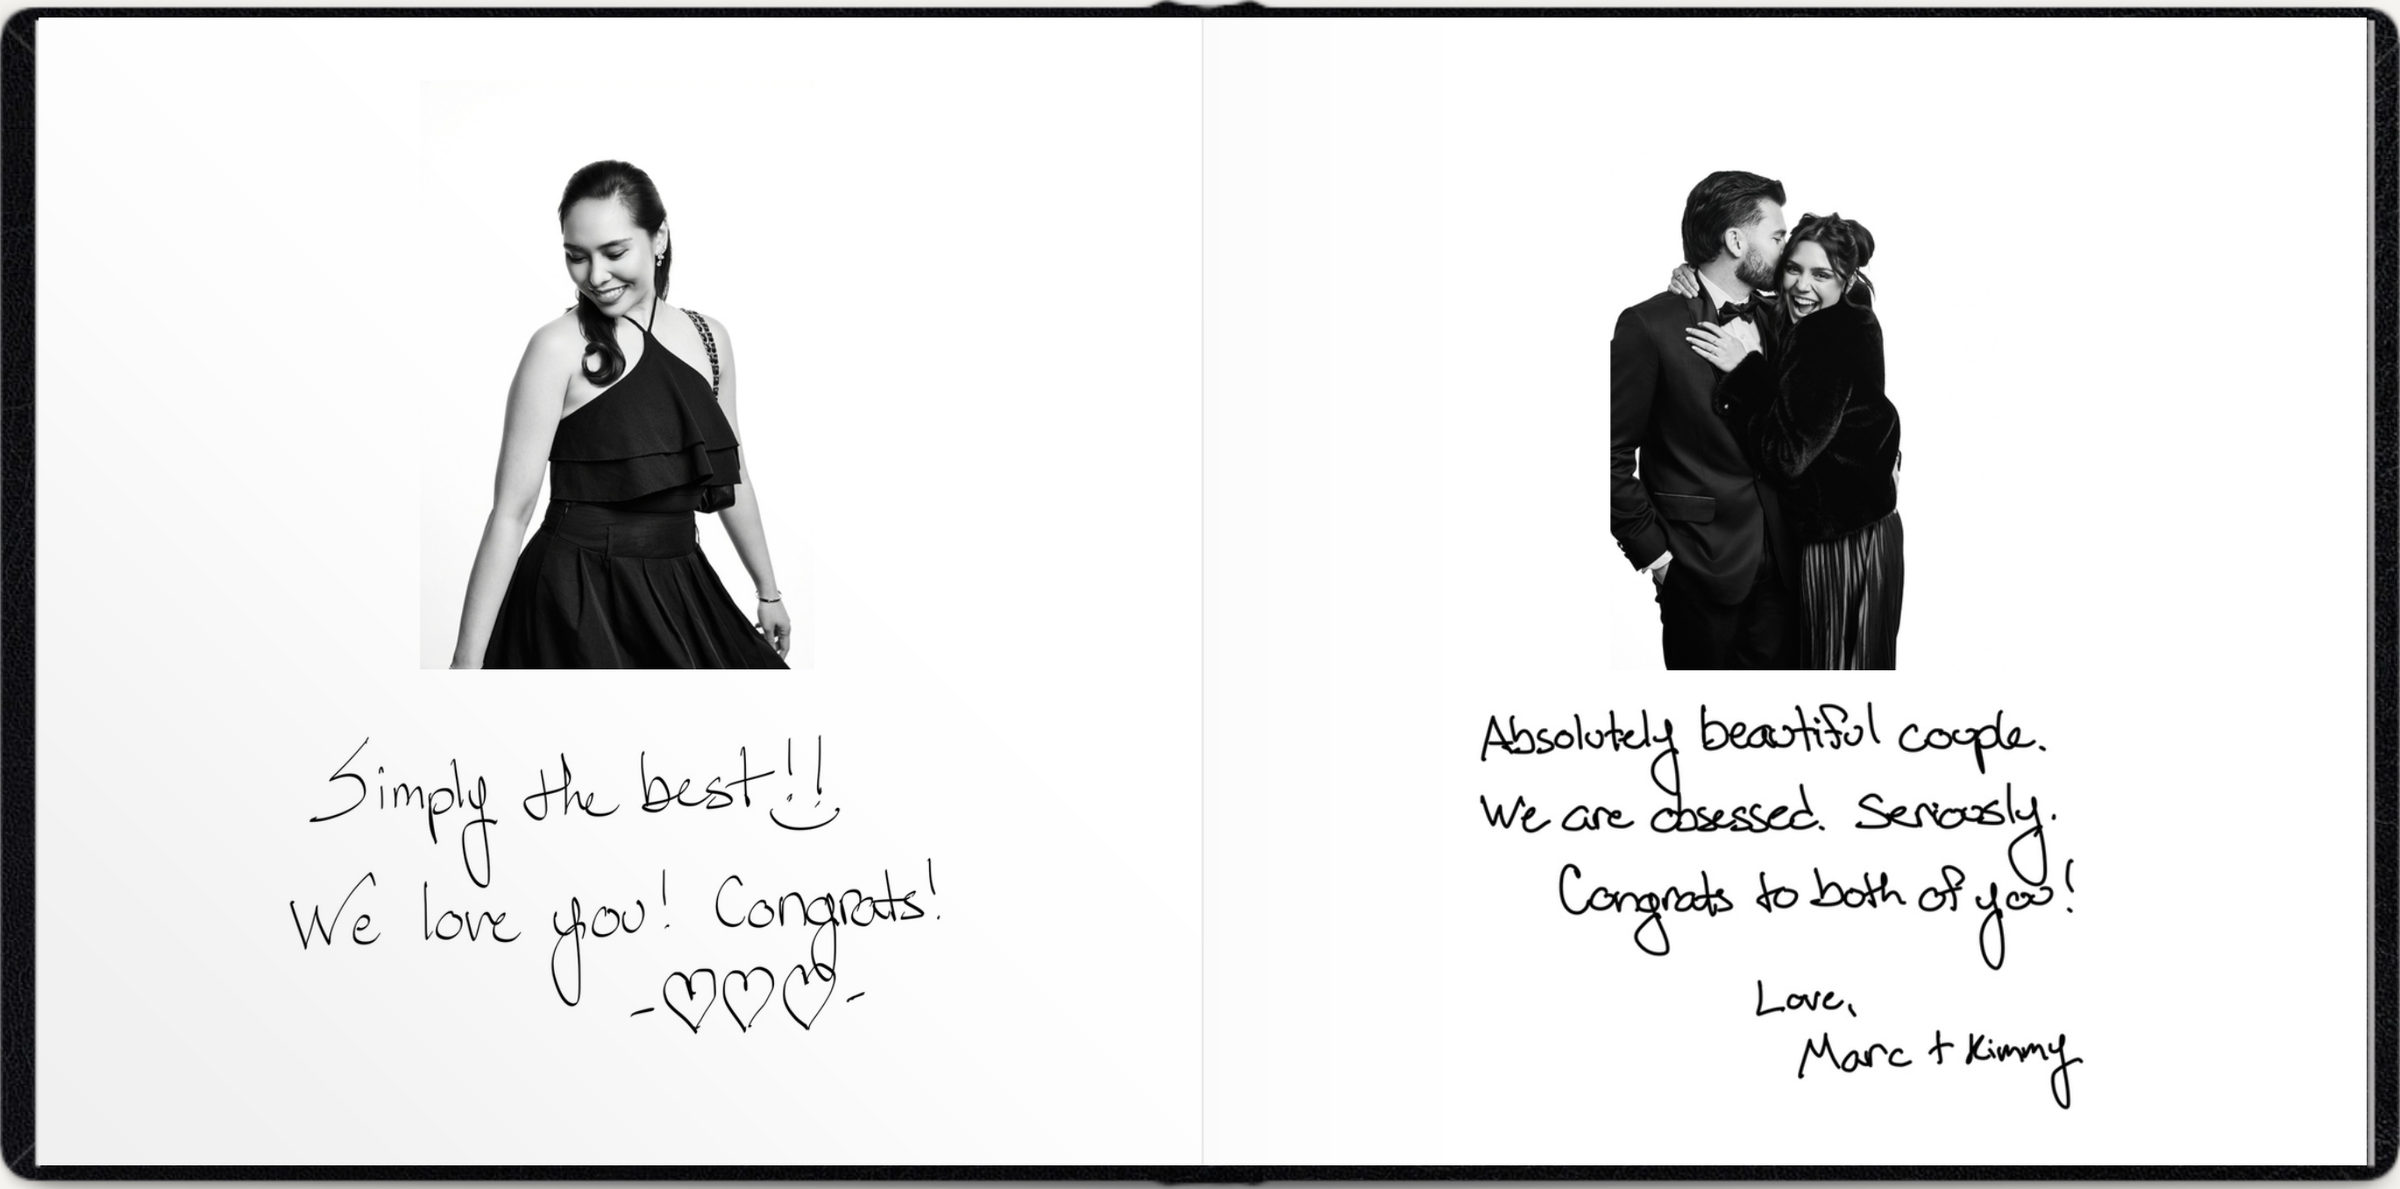 Simply the best!!
We love you! Congrats!
-♡♡♡-
Absolutely beautiful couple.
We are obsessed. Seriously.
Congrats to both of you!
Love,
Marc + Kimmy